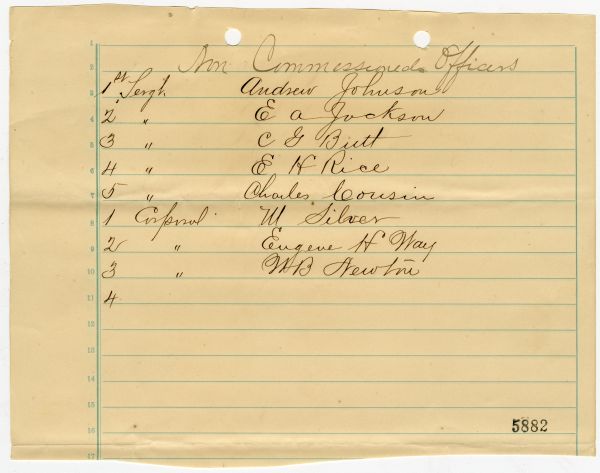 Non Commessioned Officers
1st Sergt Andrew Johnson
2 " E A Jackson
3 " C G Butt
4 " E H Rice
5 " Charles Cousin
1 Corporal M Silver
2 " Eugene H Way
3 " W B Newton
4
5882